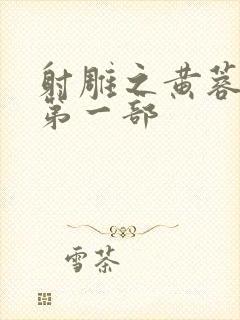 射雕之黄蓉
第一部
雪茶